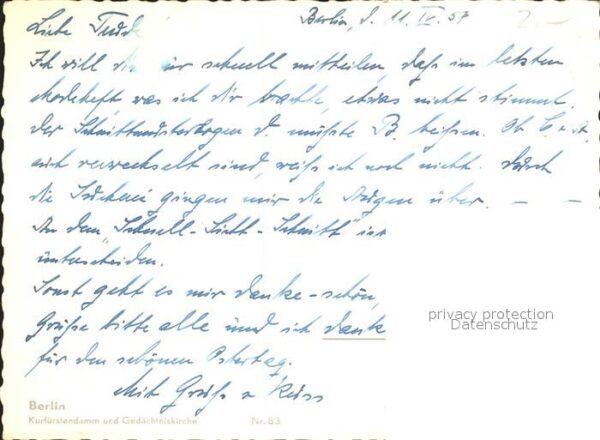 Berlin, d. 11. IV. 57
Liebe Trude
Ich will dir nur schnell mitteilen, daß im letzten
Modeheft was ich dir brachte, etwas nicht stimmt.
Der Schnittmusterbogen D müßte B heißen. Ob C u. A,
auch verwechselt sind, weiß ich noch nicht. Durch
die Sucherei gingen mir die Augen über. — —
An dem "Schnell-Sicht-Schnitt"
unterscheiden.
Sonst geht es mir danke-schön,
Grüße bitte alle und ich danke
für den schönen Ostertag.
Mit Gruß u. Kuss
privacy protection
Datenschutz
Berlin
Kurfürstendamm und Gedächtniskirche Nr. 83